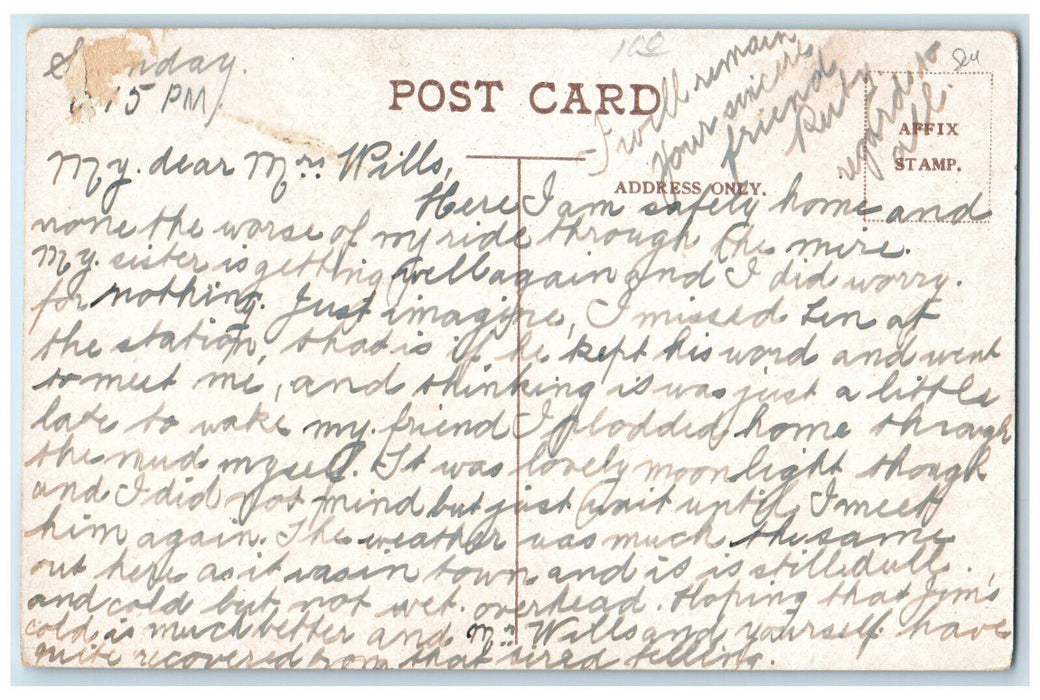 Sunday.
15 PM.
100
24
POST CARD
AFFIX
STAMP.
ADDRESS ONLY.
My. dear Mrs. Wills,
Here I am safely home and
none the worse of my ride through the mire.
My. sister is getting well again and I did worry.
for nothing. Just imagine, I missed Len at
the station, that is if he kept his word and went
to meet me, and thinking it was just a little
late to wake my friend I plodded home through
the mud myself. It was lovely moonlight though
and I did not mind but just wait until I meet
him again. The weather was much the same
out here as it was in town and is is still dull.
and cold but not wet. overhead. Hoping that Jim's
cold is much better and Mr Wills and yourself have
quite recovered from that tired felling.
I will remain
your sincere
friend
Ruby
regards to
all.